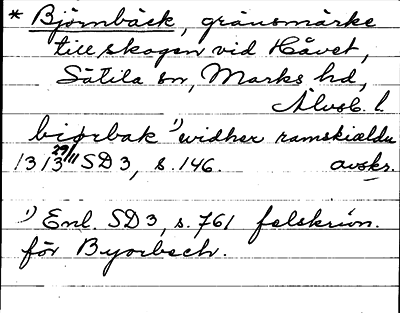 * Björnbäck, gränsmärke
till skogen vid Håvet,
Sätila sn, Marks hd,
Älvsb. l
biorbak ¹⁾ widher ramskiældu
1313 29/11 SD 3, s. 146. avskr.
¹⁾ Enl. SD 3, s. 761 felskrivn.
för Byorbech.